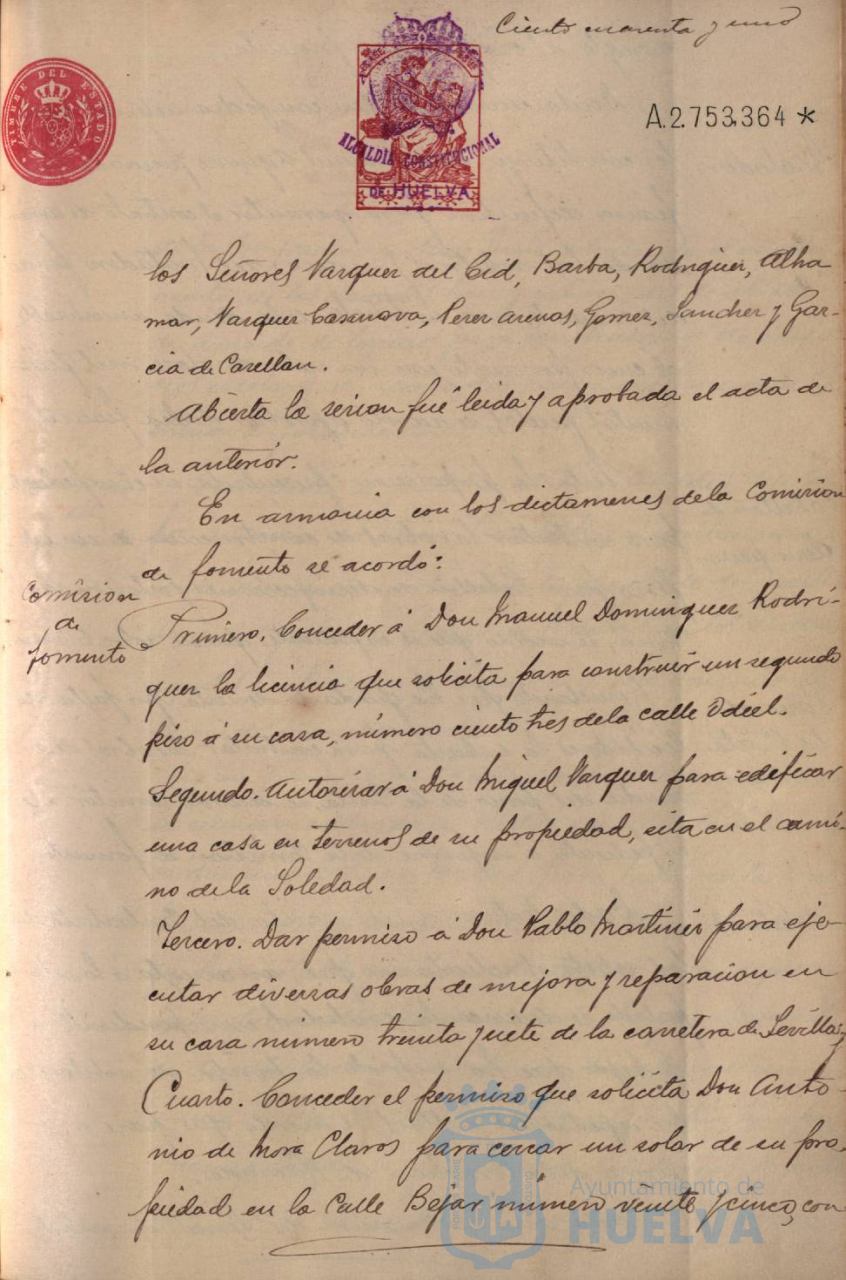 Ciento cuarenta y uno
TIMBRE DEL ESTADO
ALCALDIA CONSTITUCIONAL
DE HUELVA
A.2.753.364 *
los Señores Vazquez del Cid, Barba, Rodriguez, Alha
mar, Vazquez Casanova, Perez Arenas, Gomez, Sanchez y Gar-
cia de Casellan.
Abierta la sesion fué leida y aprobada el acta de
la anterior.
En armonia con los dictamenes de la Comision
de fomento se acordó:
Comision
de
fomento
Primero. Conceder á Don Manuel Dominguez Rodri-
guez la licencia que solicita para construir un segundo
piso á su casa, número ciento tres de la calle Odiel.
Segundo. Autorizar á Don Miguel Vazquez para edificar
una casa en terrenos de su propiedad, sita en el cami-
no de la Soledad.
Tercero. Dar permiso á Don Pablo Martinez para eje-
cutar diversas obras de mejora y reparacion en
su casa número treinta y siete de la carretera de Sevilla; y
Cuarto. Conceder el permiso que solicita Don Anto-
nio de Mora Claros para cerrar un solar de su pro-
piedad en la calle Bejar número veinte y cinco, con
Ayuntamiento de
HUELVA